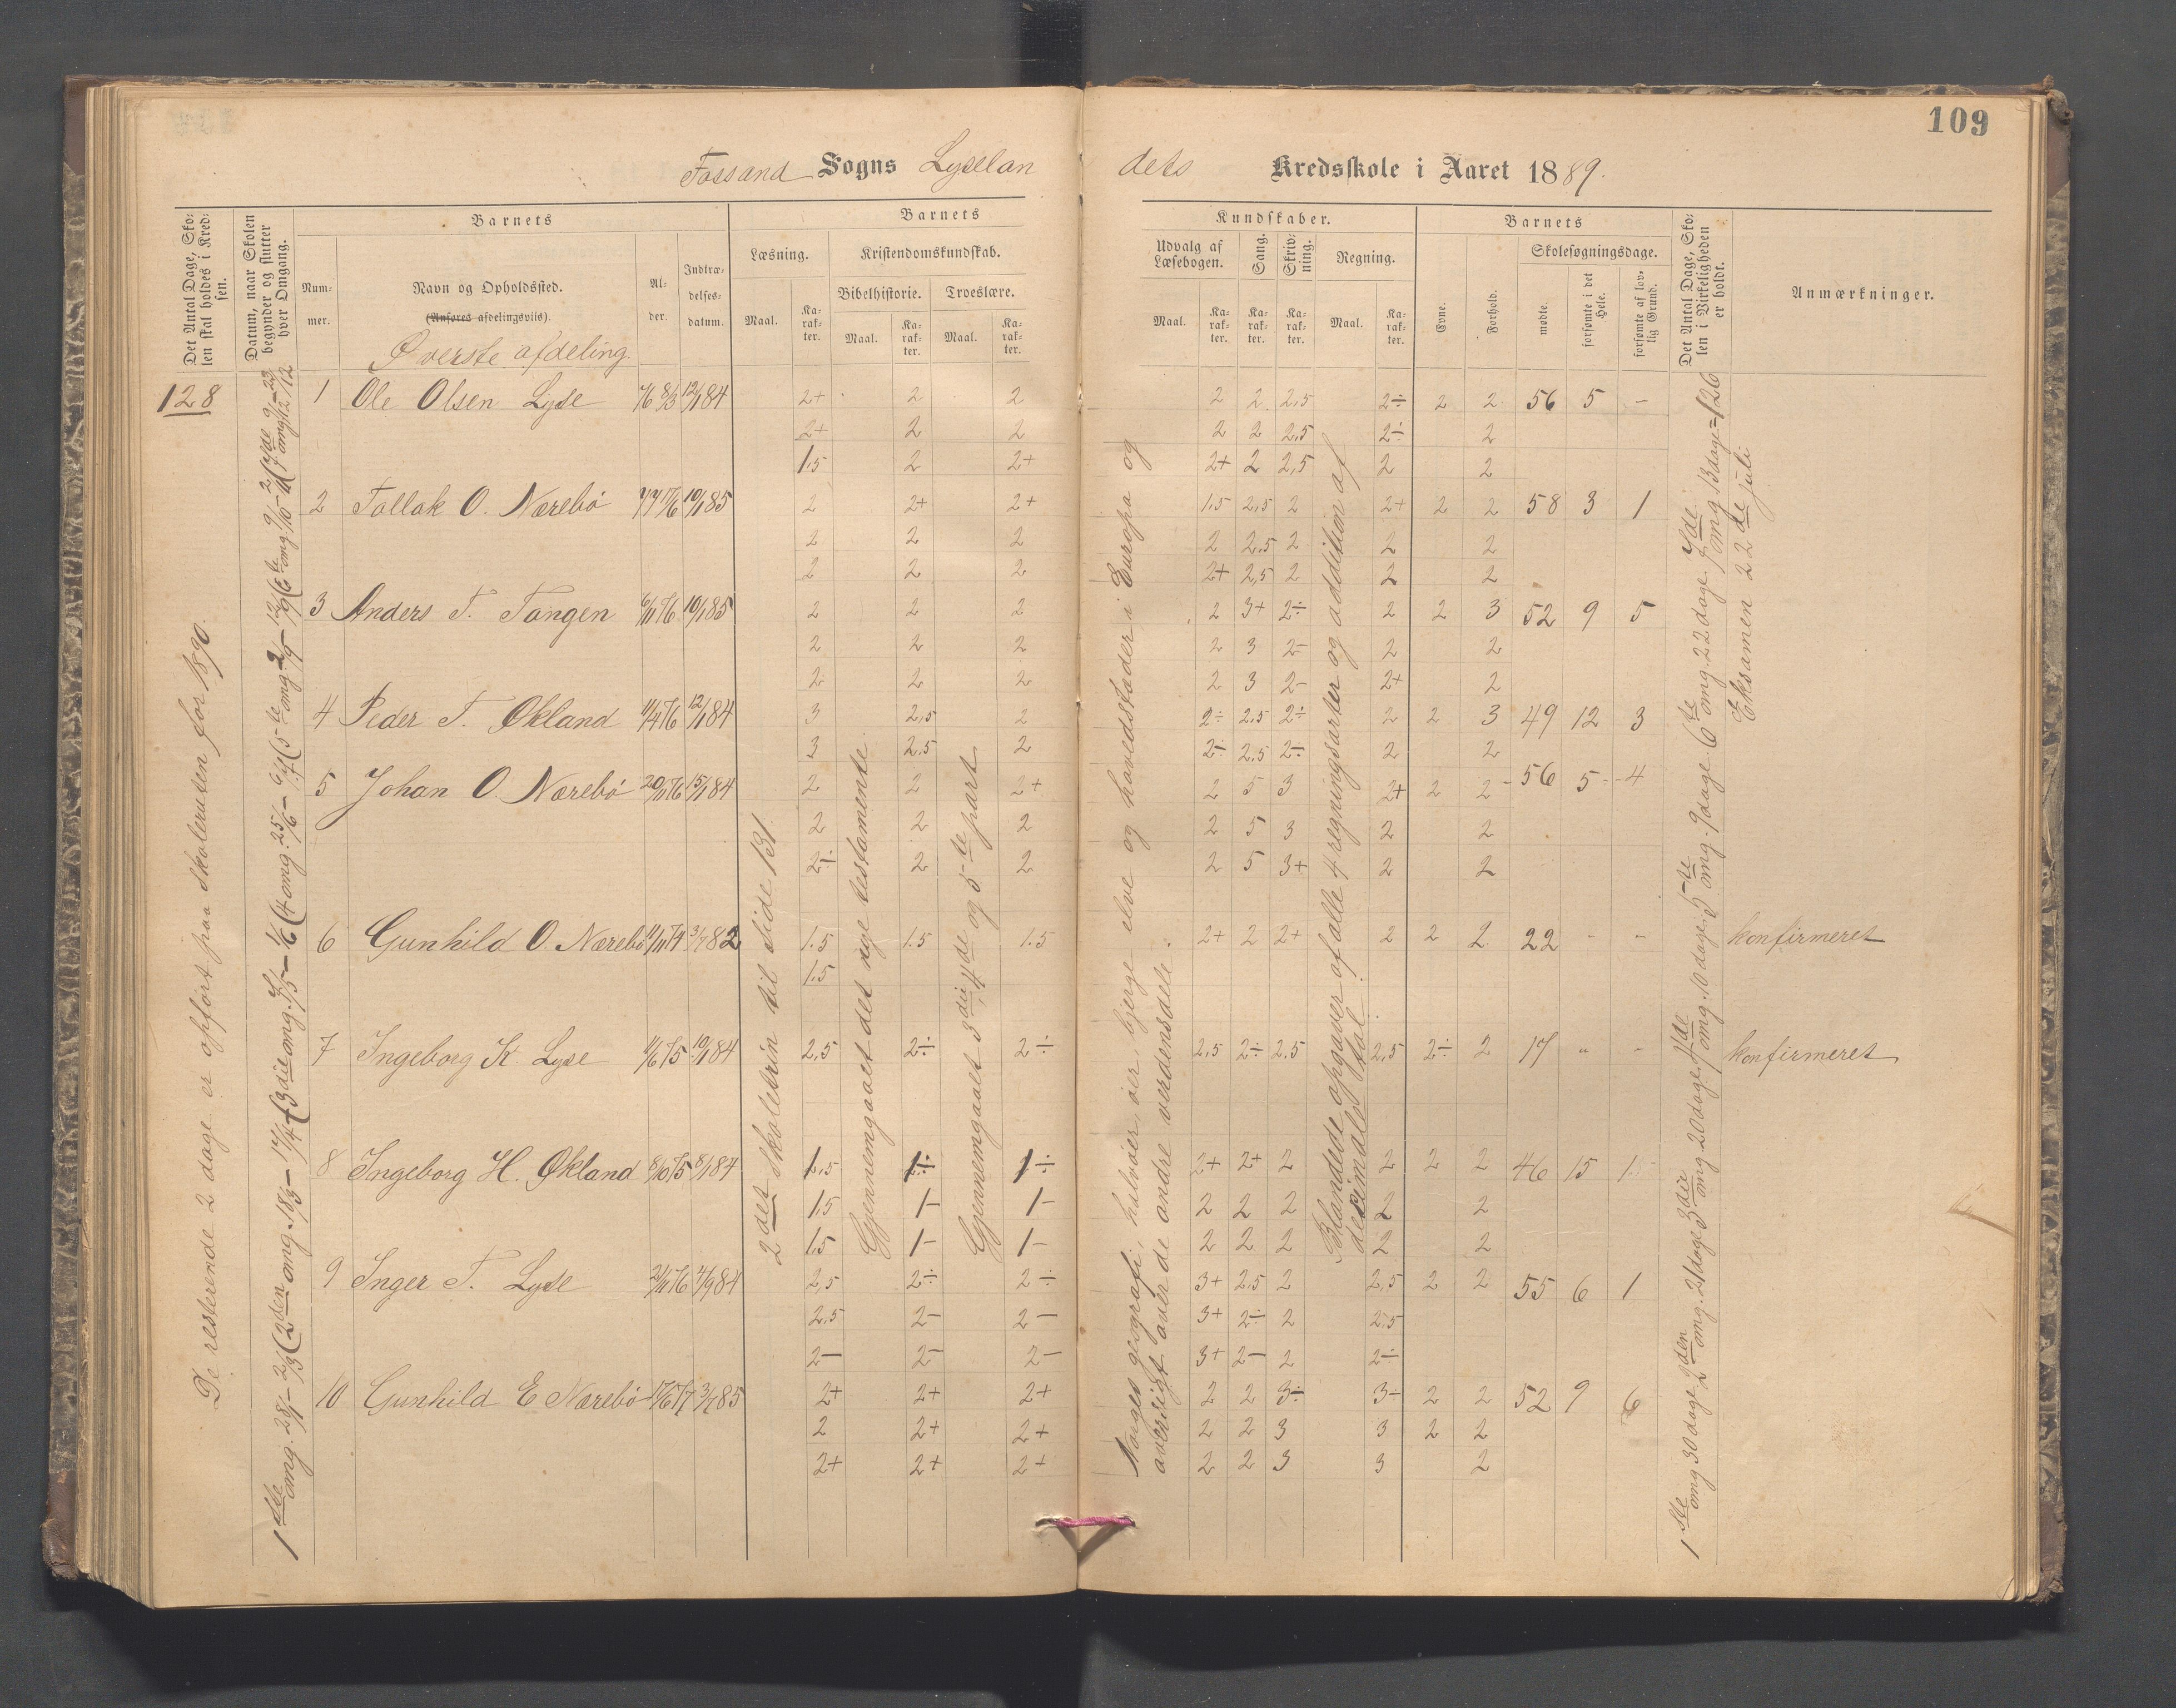 109
Fossand Sogns Lyselan
dets Kredsskole i Aaret 1889.
Det Antal Dage, Skolen skal holdes i Kredsen.
Datum, naar Skolen begynder og slutter hver Omgang.
Barnets
Nummer.
Navn og Opholdssted.
(Anføres afdelingsvis).
Alder.
Indtrædelsesdatum.
Barnets
Læsning.
Kristendomskundskab.
Bibelhistorie. Troeslære.
Maal. Karakter. Maal. Karakter. Maal. Karakter.
Kundskaber.
Udvalg af Læsebogen. Sang. Skrivning. Regning.
Maal. Karakter. Karakter. Karakter. Maal. Karakter.
Barnets
Evne. Forhold.
Skolesøgningsdage.
mødte. forsømte i det Hele. forsømte af lovlig Grund.
Det Antal Dage, Skolen i Virkeligheden er holdt.
Anmærkninger.
Øverste afdeling.
128
De resterende 2 dage er opført paa skoleruten for 1890.
2det skoletrin til side 131.
Gjennemgaaet det nye testamente.
Gjennemgaaet 3die, 4de og 5te part
Norges geografi, halvøer, øer, bjerge elve og hovedstæder i Europa og
oversigt over de andre verdensdele.
Blandede opgaver af alle 4 regningsarter og addition af
decimaltal.
1ste omg 30 dage 2den omg. 21 dage 3die omg 20 dage 4de omg. 10 dage, 5te omg. 9 dage 6te omg. 22 dage 7de omg 13 dage = 126
Eksamen 22de juli
1 Ole Olsen Lyse 76 8/3 12/1 84 2+ 2 2 2 2 2,5 2÷ 2 2 56 5 -
2+ 2 2 2 2 2,5 2÷ 2
1.5 2 2+ 2+ 2 2,5 2 2
2 Tollak O. Nærebø 77 17/6 10/1 85 2 2+ 2+ 1.5 2,5 2 2+ 2 2 58 3 1
2 2 2 2 2,5 2 2 2
2 2 2 2+ 2,5 2 2 2
3 Anders T. Tangen 6/11 76 10/1 85 2 2 2 2 3+ 2÷ 2 2 3 52 9 5
2 2 2 2 3 2- 2 2
2 2 2 2 3 2- 2+ 2
4 Peder T. Økland 11/4 76 12/1 84 3 2,5 2 2÷ 2.5 2÷ 2 2 3 49 12 3
3 2.5 2 2÷ 2.5 2÷ 2 2
5 Johan O Nærebø 20/11 76 15/1 84 2 2 2+ 2 5 3 2+ 2 2 56 5 4
2 2 2 2 5 3 2 2
2÷ 2 2 2 5 3+ 2 2
6 Gunhild O. Nærebø 11/11 74 3/7 82 1.5 1.5 1.5 2+ 2 2+ 2 2 2 22 - - konfirmeret
1.5
7 Ingeborg K. Lyse 11/6 75 10/1 84 2,5 2÷ 2÷ 2,5 2÷ 2.5 2,5 2÷ 2 17 " - konfirmeret
8 Ingeborg H. Økland 8/10 75 8/1 84 1,5 1÷ 1÷ 2+ 2+ 2 2 2 2 46 15 15
1.5 1- 1- 2 2 2 2 2
1.5 1- 1- 2 2 2 2 2
9 Inger T. Lyse 2/11 76 4/9 84 2,5 2÷ 2÷ 3+ 2.5 2 2,5 2 2 55 6 1
2,5 2- 2- 3+ 2÷ 2 2.5
2- 2- 2- 3+ 2- 2 2÷
10 Gunhild E Nærebø 17/6 77 3/7 85 2+ 2+ 2+ 2 2 3÷ 3÷ 2 2 52 9 6
2 2+ 2+ 2 2 3 3 2 2
2+ 2+ 2+ 2 2 3 3 2